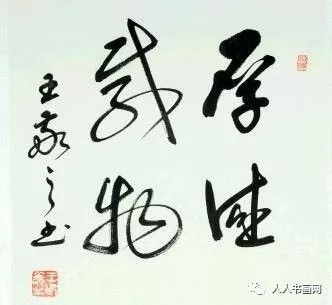 厚德
载物
王敬之书
人人书画网